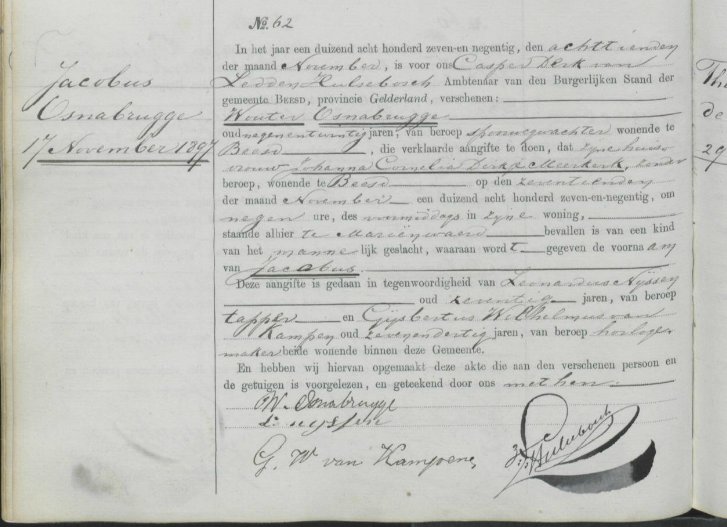 No. 62
Jacobus
Osnabrugge
17 November 1897
In het jaar een duizend acht honderd zeven-en negentig, den achttienden
der maand November, is voor ons Casper Dirk van
Ledden Hulsebosch Ambtenaar van den Burgerlijken Stand der
gemeente BEESD, provincie Gelderland, verschenen:
Wouter Osnabrugge
oud negenentwintig jaren, van beroep spoorwegwachter wonende te
Beesd, die verklaarde aangifte te doen, dat zyne huis
vrouw Johanna Cornelia Dirkje Meerkerk, zonder
beroep, wonende te Beesd op den zeventienden
der maand November een duizend acht honderd zeven-en-negentig, om
negen ure, des voormiddags in zyne woning,
staande alhier te Mariënwaerd bevallen is van een kind
van het mannelijk geslacht, waaraan wordt gegeven de voornaam
van Jacobus.
Deze aangifte is gedaan in tegenwoordigheid van Leonardus Nyssen
oud zeventig jaren, van beroep
tapper en Gijsbertus Wilhelmus van
Kampen oud zevenendertig jaren, van beroep horloge-
maker beide wonende binnen deze Gemeente.
En hebben wij hiervan opgemaakt deze akte die aan den verschenen persoon en
de getuigen is voorgelezen, en geteekend door ons met hen.
W. Osnabrugge
L. nyssen
G. W van Kampen